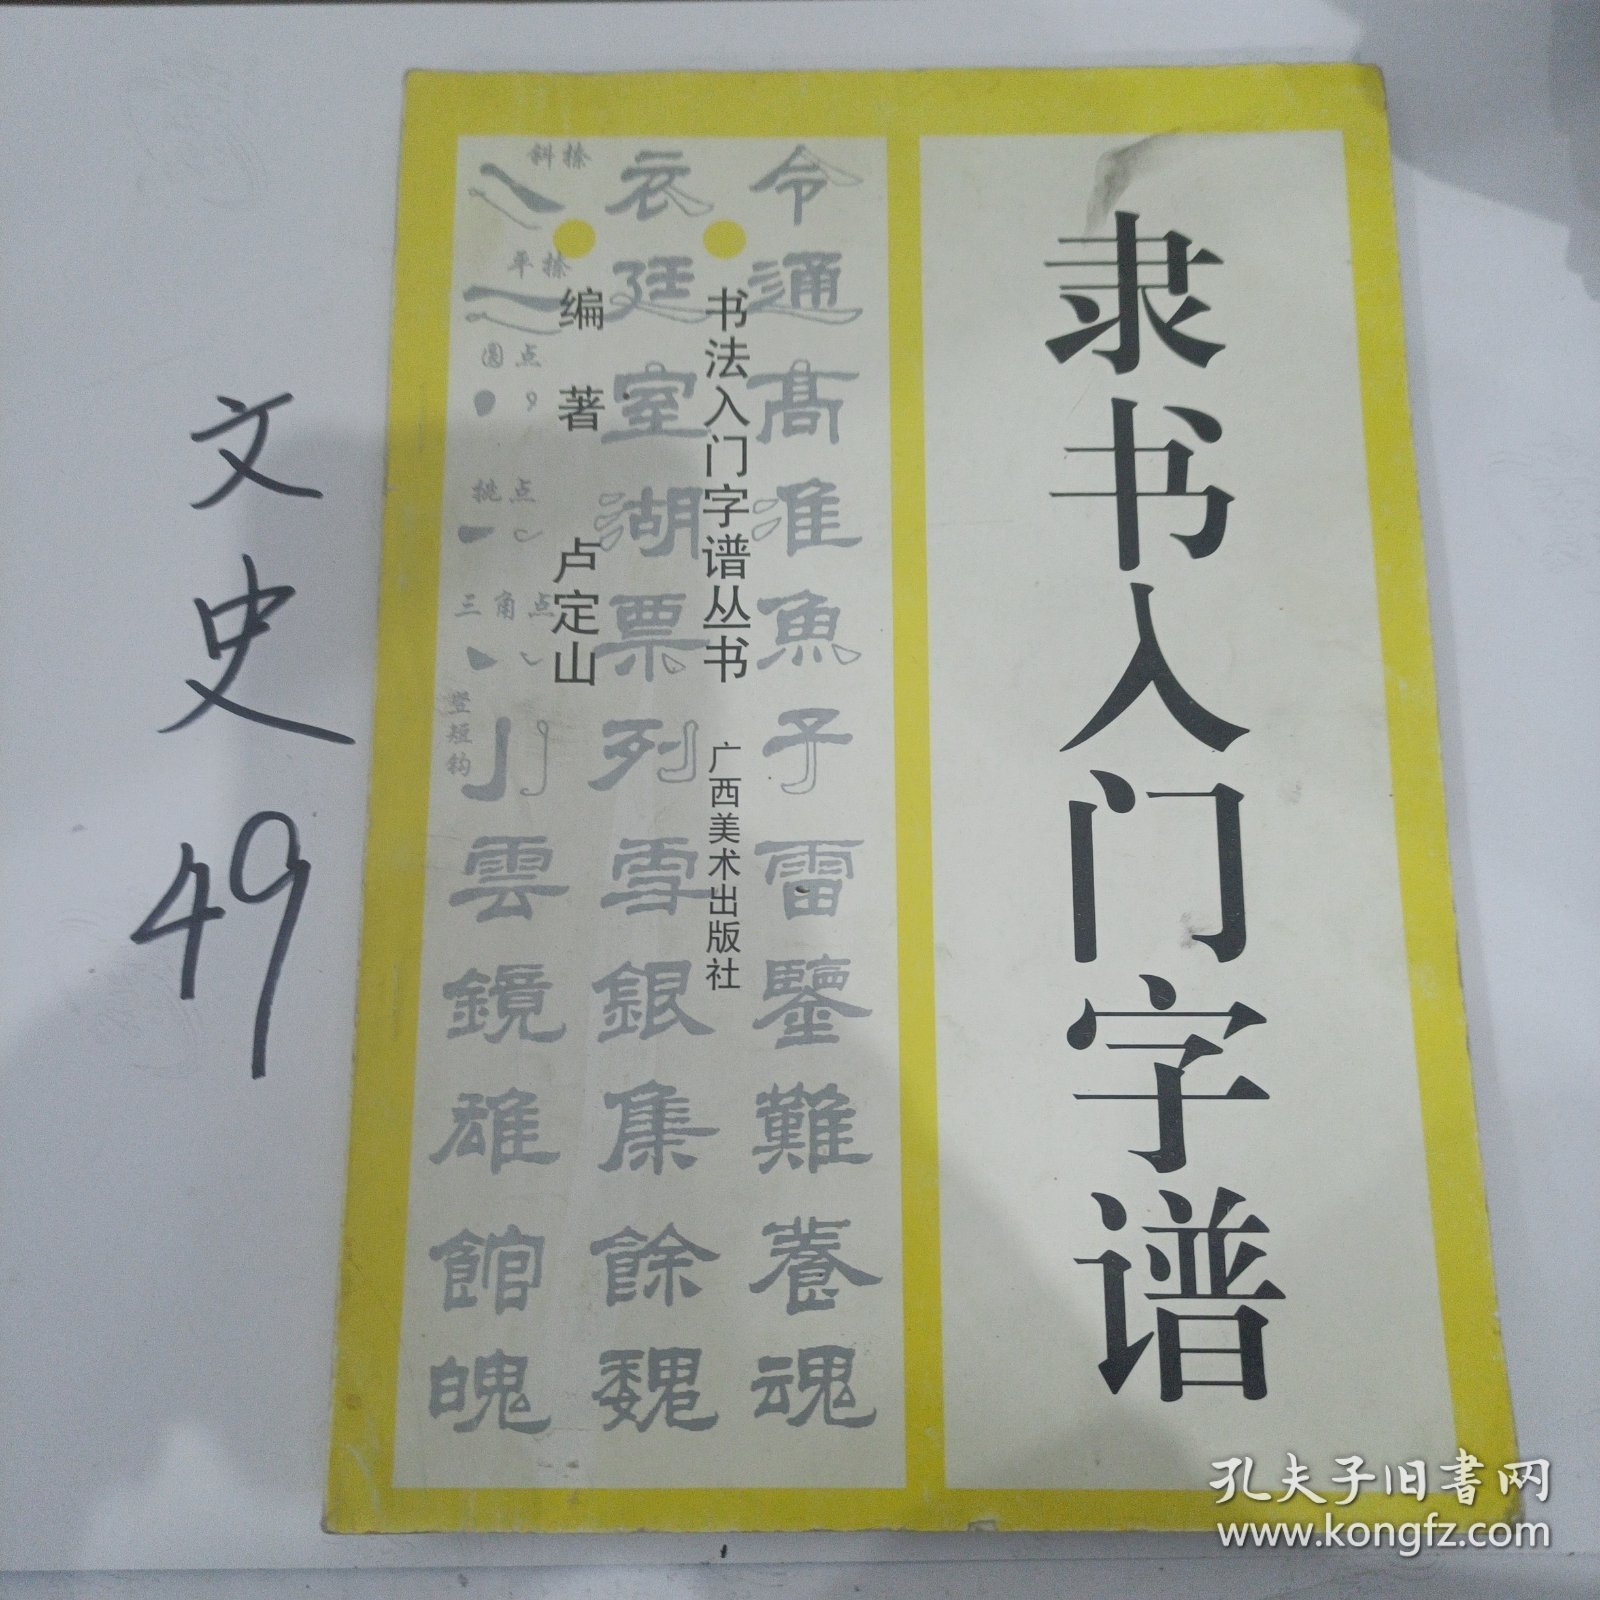 隶书入门字谱
书法入门字谱丛书
广西美术出版社
编著 卢定山
令通高准魚子雷鑒難養魂
衣廷室湖票列雪銀集餘魏
斜捺
平捺
圆点
挑点
三角点
竖短钩
雲鏡雄館魄
文史
49
孔夫子旧書网
www.kongfz.com